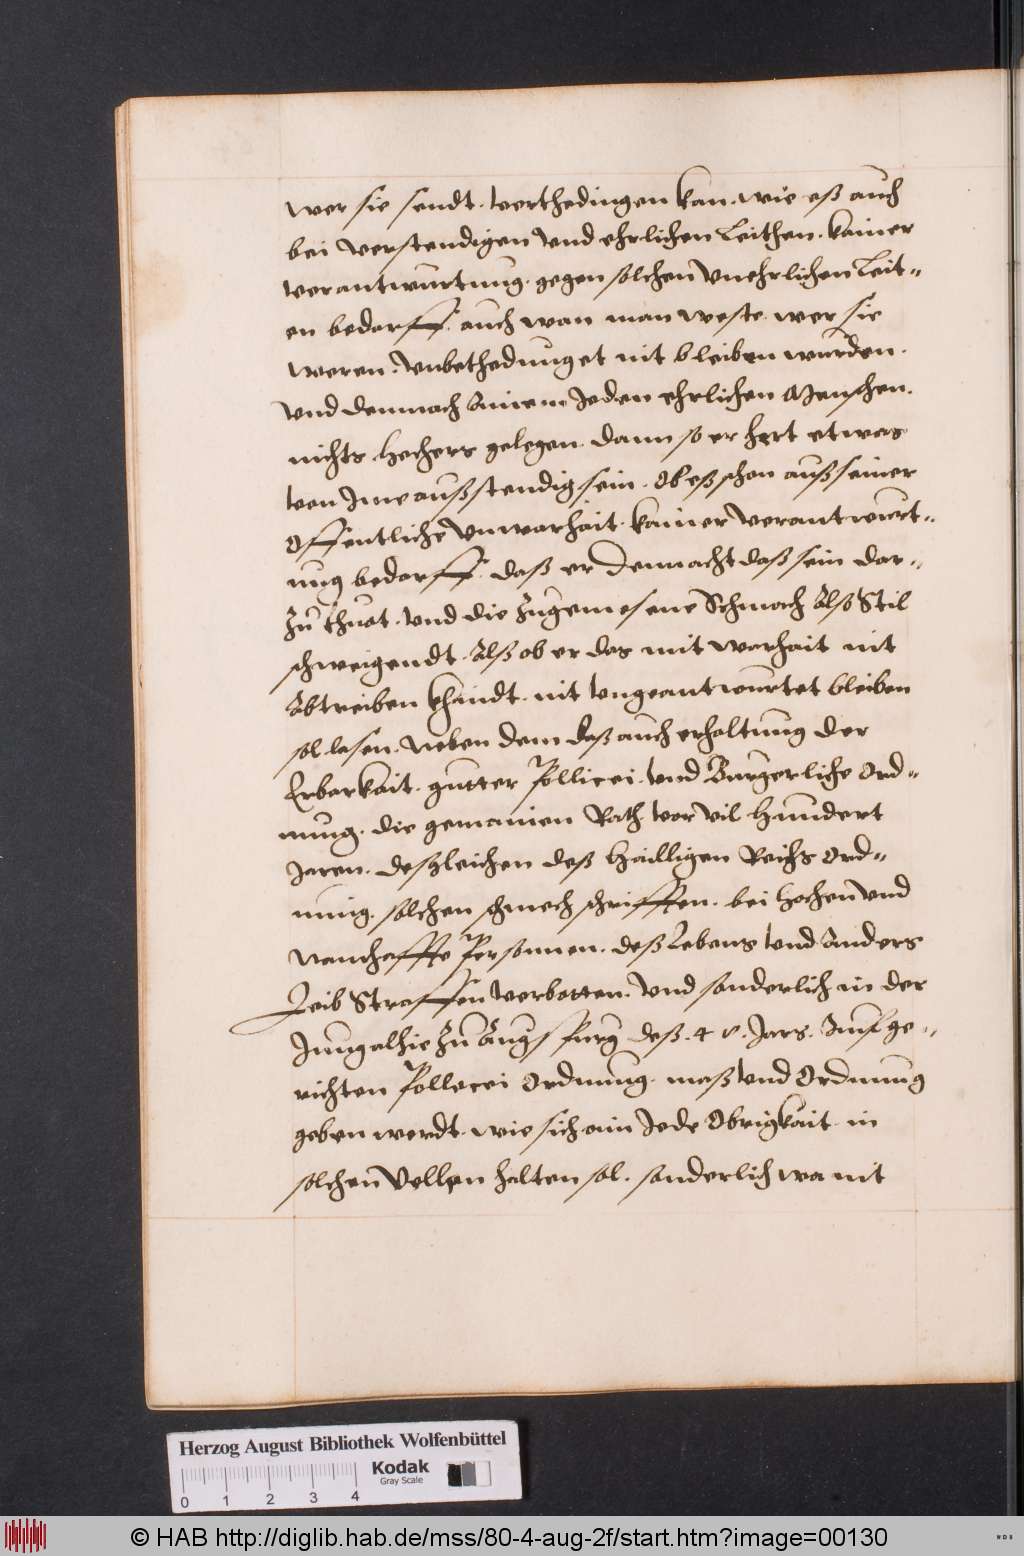 wer sie sendt. verthedingen kan. wie eß auch
bei verstendigen vnd ehrlichen Leithen. kainer
verantwurtung. gegen solchen vnehrlichen Leit-
en bedarff. auch wan man weste. wer sie
weren. vnbethedunget nit bleiben wurden.
vnd dennach Ainem Jeden ehrlichen Menschen.
nichts hechers gelegen. dann so er hert etwas
von Ime außstendig sein. Ob eß schon auß seiner
offentliche vnwarhait. kainer verantwurt-
ung bedarff. daß er dennacht daß sein dar-
zu thuot. vnd die zugemesene Schmach Also Stil
schweigendt. Alß ob er das mit warhait nit
Abtreiben khündt. nit vngeantwurtet bleiben
sol lasen. Neben dem daß auch erhaltung der
Erbarkait. gutter Pollicei. vnd Burgerliche Ord-
nung. die gemainen Rath. vor vil hundert
Jaren. desgleichen deß hailligen Reichs Ord-
nung. solchen schmech schrifften. bei hochen vnd
Namhaffte Personnen. deß Lebens vnd Anders
Leib Straffen verbotten. vnd sonderlich in der
Jung alhie zu Augspurg deß. 48. Jars. Auffge-
richten Pollecei Ordnung. maß vnd Ordnung
geben werdt. wie sich ain Jede Obrigkait. in
solchen Vellen halten sol. sonderlich wa nit
Herzog August Bibliothek Wolfenbüttel
Kodak
Gray Scale
0 1 2 3 4
© HAB http://diglib.hab.de/mss/80-4-aug-2f/start.htm?image=00130